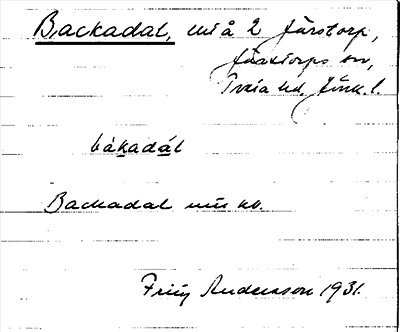 Backadal, urå 2 Järstorp,
Järstorps sn,
Tveta hd, Jönk. l.
bákadál
Backadal
Andersson 1931.